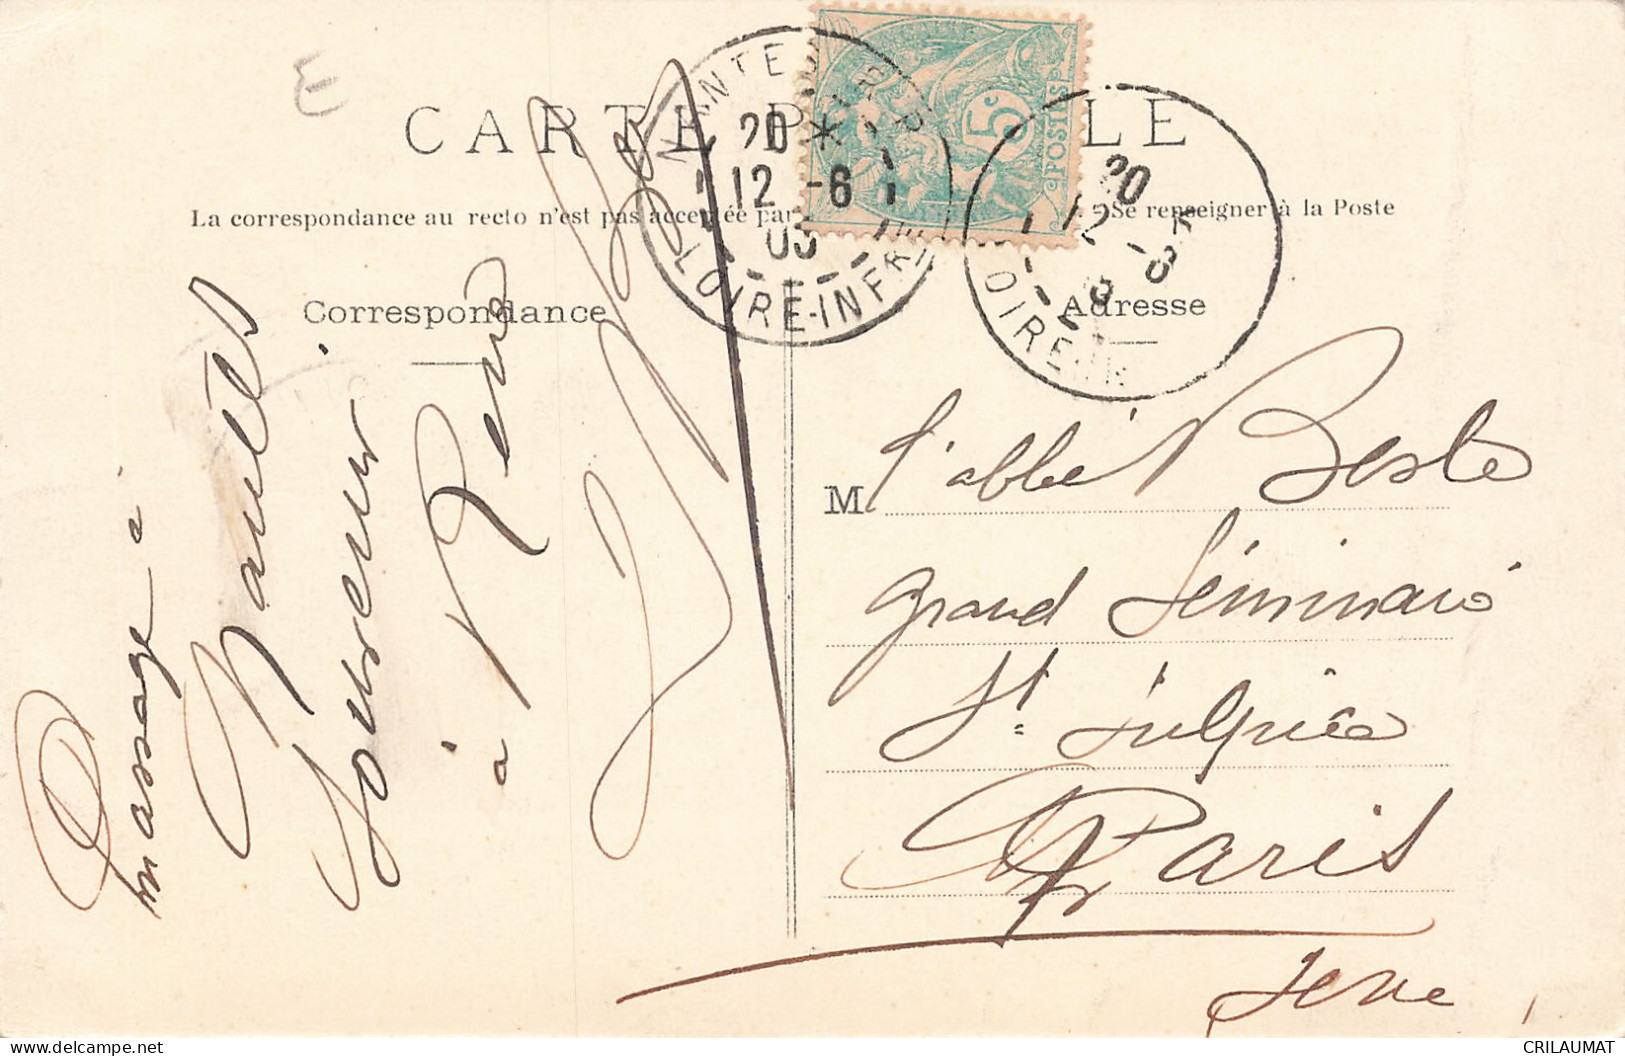 E
CARTE P LE
La correspondance au recto n'est pas acceptée par Se renseigner à la Poste
Correspondance
Adresse
NANTES
20 *
12 -6
05
LOIRE-INFRE
5c
POSTES
20
12 -6
LOIRE-IN
De passage à
Nantes
Souvenir
à René
M l'abbé Besle
grand Séminaire
St. Sulpice
Paris
Seine
CRILAUMAT